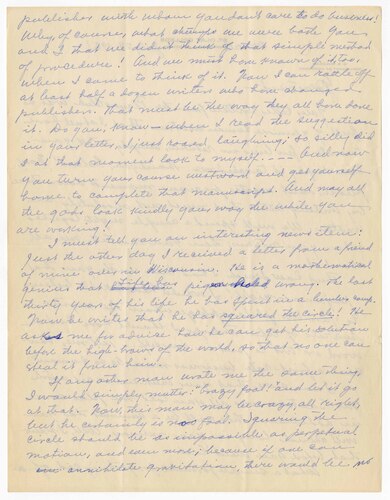 publisher with whom you don't care to do business!
Why, of course, what chumps we were both you
and I that we didn't think of that simple method
of procedure! And we must have known of it too,
when I come to think of it. Now I can rattle off
at least half a dozen writers who have changed
publishers. That must be the way they all have done
it. Do you know — when I read the suggestion
in your letter, I just roared laughing; so silly did
I at that moment look to myself. --- And now
you turn your course westward and get yourself
home to complete that manuscript. And may all
the gods look kindly your way the while you
are working!
I must tell you an interesting news item:
Just the other day I received a letter from a friend
of mine over in Wisconsin. He is a mathematical
genius that pigeon holed wrong. The last
thirty years of his life he has spent in a lumber camp.
Now he writes that he has squared the circle! He
asks me for advise how he can get his solution
before the high-brows of the world, so that no one can
steal it from him.
If any other man wrote me the same thing,
I would simply mutter: "Crazy fool!" and let it go
at that. Now, this man may be crazy, all right,
but he certainly is no fool. Squaring the
circle should be as impossible as perpetual
motion, and even more; because if one can
annihilate gravitation, there would be no